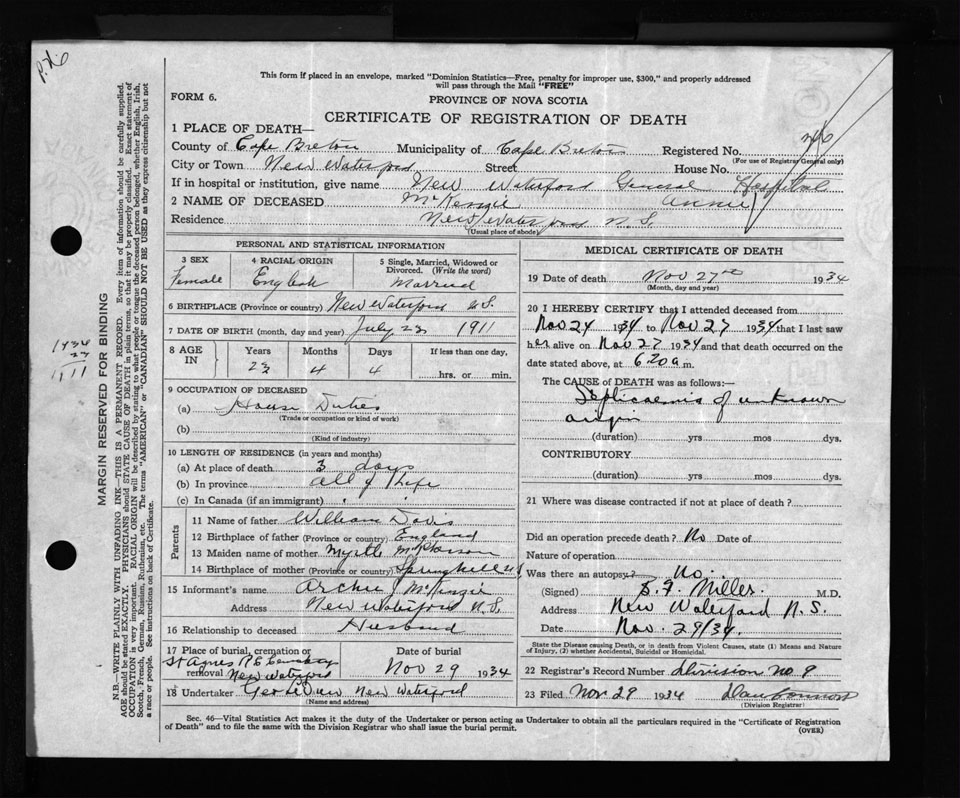 This form if placed in an envelope, marked "Dominion Statistics—Free, penalty for improper use, $300," and properly addressed
will pass through the Mail "FREE"
FORM 6.
PROVINCE OF NOVA SCOTIA
CERTIFICATE OF REGISTRATION OF DEATH
1 PLACE OF DEATH—
County of Cape Breton Municipality of Cape Breton Registered No.
(For use of Registrar General only)
City or Town New Waterford Street House No.
If in hospital or institution, give name New Waterford General Hospital
2 NAME OF DECEASED McKenzie Annie
Residence New Waterford N.S.
(Usual place of abode)
PERSONAL AND STATISTICAL INFORMATION
3 SEX 4 RACIAL ORIGIN 5 Single, Married, Widowed or
Divorced. (Write the word)
Female English Married
6 BIRTHPLACE (Province or country) New Waterford N.S.
7 DATE OF BIRTH (month, day and year) July 23 1911
8 AGE IN Years Months Days If less than one day,
23 4 4 hrs. or min.
9 OCCUPATION OF DECEASED
(a) House Duties
(Trade or occupation or kind of work)
(b)
(Kind of industry)
10 LENGTH OF RESIDENCE (in years and months)
(a) At place of death 3 days
(b) In province all of life
(c) In Canada (if an immigrant)
Parents
11 Name of father William Davis
12 Birthplace of father (Province or country) England
13 Maiden name of mother Myrtle
14 Birthplace of mother (Province or country) Springhill N.S.
15 Informant's name Archie McKenzie
Address New Waterford N.S.
16 Relationship to deceased Husband
17 Place of burial, cremation or Date of burial
St Agnes R C Cemetery
removal New Waterford Nov 29 1934
18 Undertaker New Waterford
(Name and address)
MEDICAL CERTIFICATE OF DEATH
19 Date of death Nov 27th 1934
(Month, day and year)
20 I HEREBY CERTIFY that I attended deceased from
Nov 24 1934 to Nov 27 1934 that I last saw
her alive on Nov 27 1934 and that death occurred on the
date stated above, at 6 20 a. m.
The CAUSE OF DEATH was as follows:—
Septicaemia of unknown
origin
(duration) yrs mos dys.
CONTRIBUTORY
(duration) yrs. mos. dys.
21 Where was disease contracted if not at place of death?
Did an operation precede death? No Date of
Nature of operation
Was there an autopsy? No.
(Signed) Miller. M.D.
Address New Waterford N.S.
Date Nov. 29/34.
State the Disease causing Death, or in death from Violent Causes, state (1) Means and Nature
of Injury, (2) whether Accidental, Suicidal or Homicidal.
22 Registrar's Record Number division no 9
23 Filed Nov 29 1934
(Division Registrar)
Sec. 46—Vital Statistics Act makes it the duty of the Undertaker or person acting as Undertaker to obtain all the particulars required in the "Certificate of Registration
of Death" and to file the same with the Division Registrar who shall issue the burial permit.
(OVER)
MARGIN RESERVED FOR BINDING
N.B.—WRITE PLAINLY WITH UNFADING INK—THIS IS A PERMANENT RECORD. Every item of information should be carefully supplied.
AGE should be stated EXACTLY. PHYSICIANS should STATE CAUSE OF DEATH in plain terms, so that it may be properly classified. Exact statement of
OCCUPATION is very important. RACIAL ORIGIN will be described by stating to what people or tongue the deceased person belonged, whether English, Irish,
Scotch, French, German, Russian, Ruthenian, etc. The terms "AMERICAN" or "CANADIAN" SHOULD NOT BE USED as they express citizenship but not
a race or people. See instructions on back of Certificate.
1934
23
1911